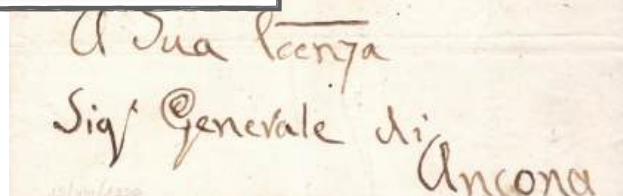 A Sua Ecenza
Sig.r Generale di
Ancona